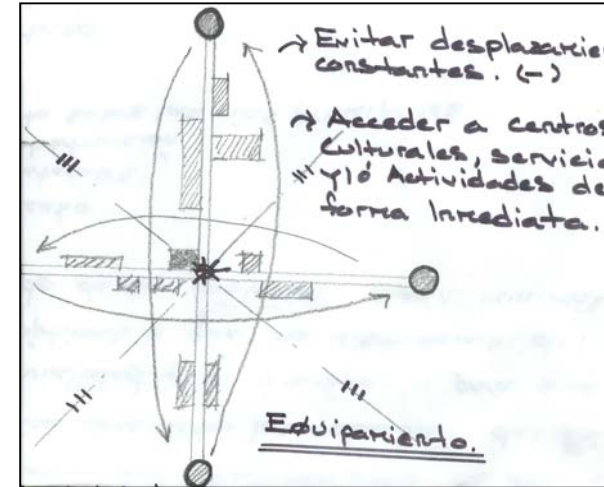 → Evitar desplazamien
constantes. (-)
→ Acceder a centros
Culturales, servicio
y/ó Actividades de
forma Inmediata.
Equipamiento.